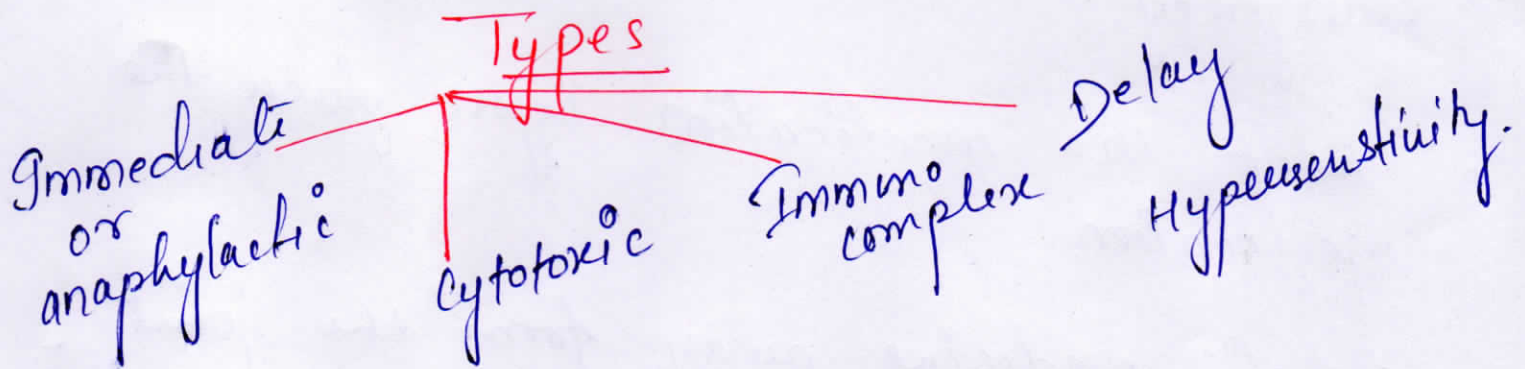 Types
Immediate
or
anaphylactic
Cytotoxic
Immuno
complex
Delay
Hypersenstivity.